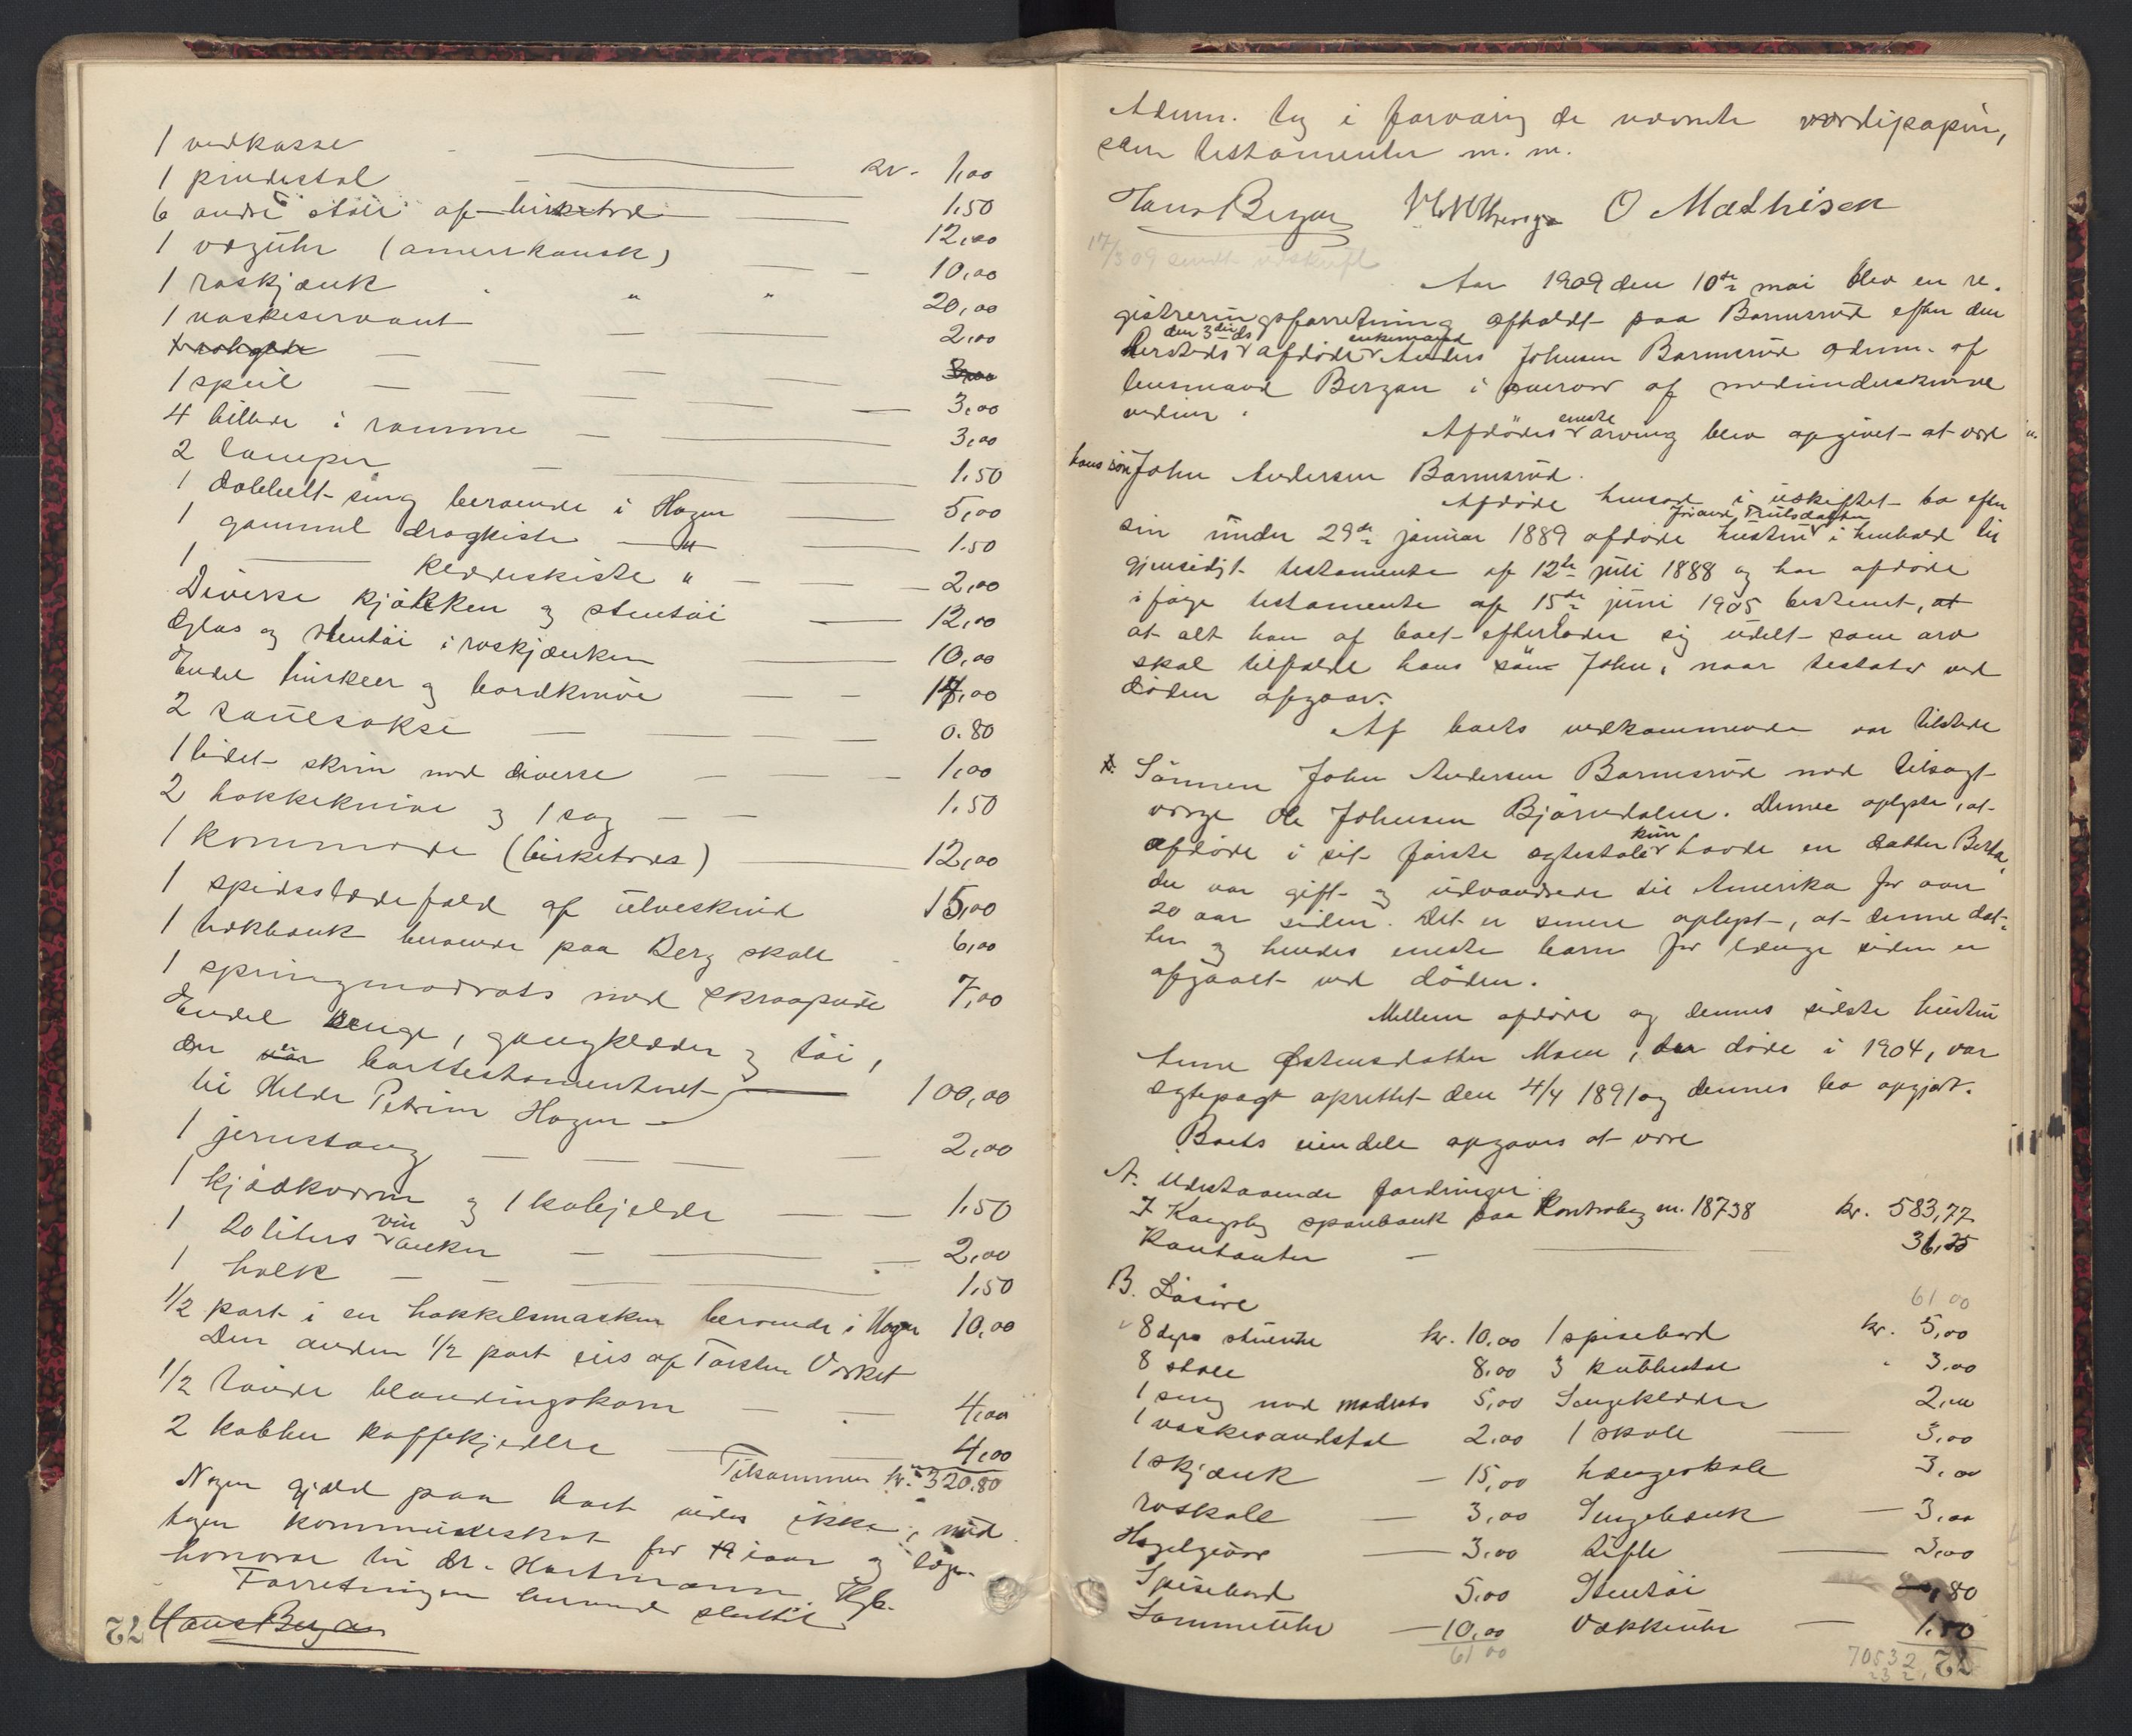 1 vedkasse kr. 1,00
1 pindestol 1.50
6 andre stole af birketræ 12,00
1 væguhr (amerikansk) 10,00
1 roskjænk " " 20,00
1 vaskeservant 2,00
1 speil 3,00
4 billede i ramme 3,00
2 lamper 1.50
1 dobbelt seng beroende i Hagen 5,00
1 gammel dragkiste " 1.50
1 — klædeskiste " 2,00
Diverse kjøkken og stentøi 12,00
Glas og stentøi i roskjænken 10,00
Endel huskeer og bordknive
2 sauesakse 0.80
1 lidet skrin med diverse 1,00
2 hakkeknive og 1 sag 1.50
1 kommode (birketræs) 12,00
1 spidsslædefæld af ulveskind 15,00
1 høkbænk beroende paa Berg skole 6,00
1 springmadrats med skraapude 7,00
Endel senge, gangklæder og tøi,
der er borttestamenteret 100,00
til Helde Petrine Hagen
1 jernstang 2,00
1 kjødkværn og 1 kobjelde 1.50
1 20 liters vin anker 2,00
1 holk 1.50
1/2 part i en hakkelsmaskin beroende i Hagen 10,00
Den anden 1/2 part eies af Torsten Verket
1/2 tønde blandingskorn 4,00
2 kobber kaffekjedler 4,00
Tilsammen kr. 320.80
Nogen gjæld paa boet vides ikke, und
tagen kommuneskat for iaar og læge
honorar til dr. Hartmann, Kgb.
Forretningen hermed sluttet
Hans Bergan
72
Adm. tog i forvaring de nævnte værdipapir,
som testamenter m. m.
Hans Bergan O Mathisen
17/5 09 sendt udskrift
Aar 1909 den 10de mai blev en re-
gistreringsforretning afholdt paa Barmsrud efter den
hersteds den 3die ds afdøde enkemand Anders Johnsen Barmsrud adm. af
lensmand Bergan i overvær af medunderskrevne
vidner.
Afdødes eneste arving blev opgivet at være
hans søn John Andersen Barmsrud.
Afdøde hensad i uskiftet bo efter
sin under 29de januar 1889 afdøde hustru Trulsdatter i henhold til
gjensidigt testamente af 12te juli 1888 og har afdøde
ifølge testamente af 15de juni 1905 bestemt, at
at alt han af boet efterlader sig udelt som arv
skal tilfalde hans søn John, naar testator ved
døden afgaar.
Af boets vedkommende var tilstede
Sønnen John Andersen Barmsrud med tilsagt
værge Ole Johnsen Bjørndalen. Denne oplyste, at
afdøde i sit første egteskab kun havde en datter Berta,
der var gift og udvandrede til Amerika for over
20 aar siden. Det er senere oplyst, at denne dat-
ter og hendes eneste barn for længe siden er
afgaaet ved døden.
Mellem afdøde og dennes sidste hustru
Anne Østensdatter Moen, der døde i 1904, var
egtepagt oprettet den 4/4 1891 og dennes bo opgjort.
Boets eiendele opgaves at være
A. Udestaaende fordringer
I Kongsberg sparebank paa Kontrabog nr. 18738 kr. 583,77
Kontanter 31,25
B. Løsøre 61 00
8 kr. 10.00 1 spisebord kr. 5,00
8 stole 8.00 3 kubbestol 3.00
1 seng med madrats 5,00 Sengeklæder 2,00
1 vaskevandstol 2.00 1 skole 3,00
1 skjænk 15,00 hængeskale 3,00
roskall 3,00 Sengebænk 3,00
Hagelgevær 3.00 rifle 3,00
Spisebord 5.00 Stentøi 80
Lommeuhr 10,00 Vækkeuhr 1.50
61 00 705 32